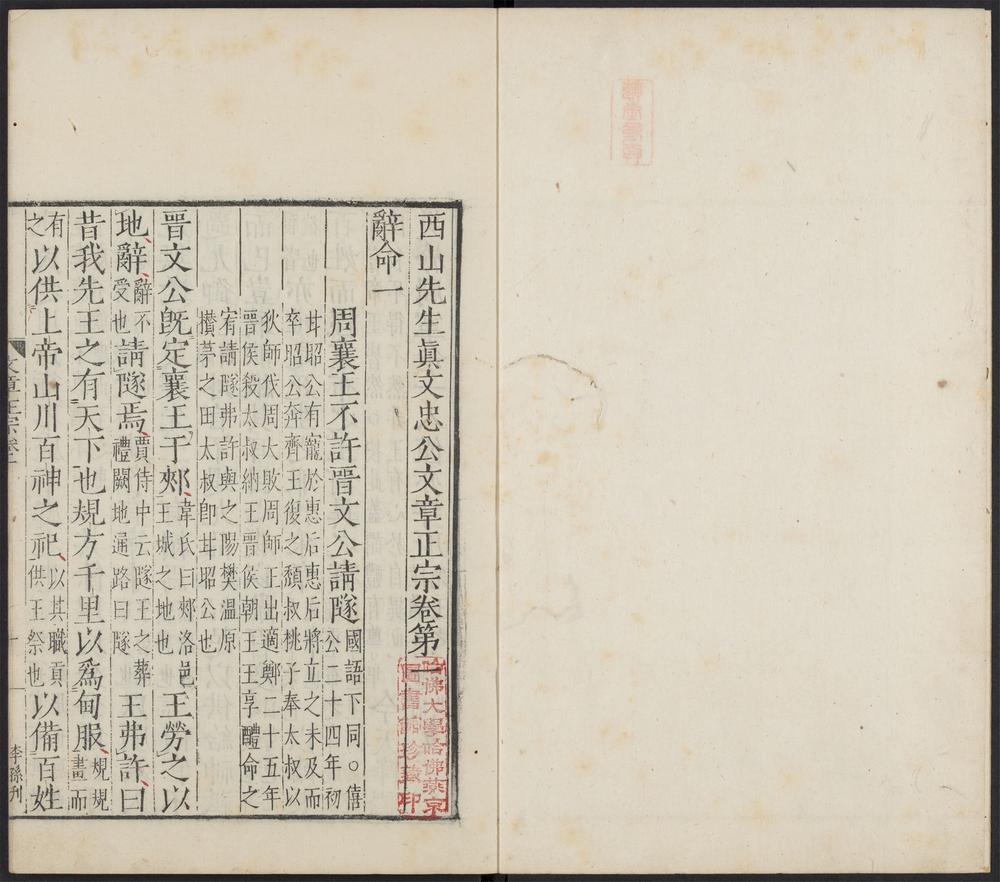 西山先生眞文忠公文章正宗卷第一
辭命一
周襄王不許晉文公請隧國語下同○僖公二十四年初
甘昭公有寵於惠后惠后將立之未及而
卒昭公奔齊王復之頹叔桃子奉太叔以
狄師伐周大敗周師王出適鄭二十五年
晉侯殺太叔納王晉侯朝王王享醴命之
宥請隧弗許與之陽樊溫原
攢茅之田太叔卽甘昭公也
晉文公旣定襄王于郟韋氏曰郟洛邑王城之地也王勞之以
地辭辭不受也請隧焉賈侍中云隧王之葬禮闕地通路曰隧王弗許曰
昔我先王之有天下也規方千里以爲甸服規規畫而
有之以供上帝山川百神之祀以其職貢供王祭也以備百姓
文章正宗卷一
一
李孫刊
哈佛大學哈佛燕京圖書館珍藏印